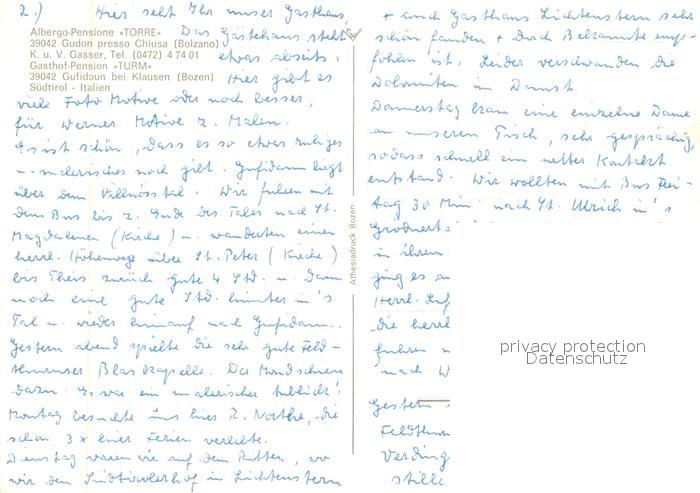 2.) Hier seht Ihr unser Gasthaus.
Albergo-Pensione «TORRE»
39042 Gudon presso Chiusa (Bolzano)
K. u. V. Gasser, Tel. (0472) 4 74 01
Gasthof-Pension «TURM»
39042 Gufidaun bei Klausen (Bozen)
Südtirol - Italien
Das Gästehaus steht
etwas abseits.
Hier gibt es
viele Foto Motive oder noch besser,
für Werner Motive z. Malen.
Es ist schön, dass es so etwas ruhiges
u. malerisches noch gibt. Gufidaun liegt
über dem Villnösstal. Wir fuhren mit
dem Bus bis z. Ende des Tales nach St.
Magdalenen (Kirche) u. wanderten einen
herrl. Höhenweg über St. Peter (Kirche)
bis Theis zurück gute 4 Std. u. dann
noch eine gute Std. hinunter in's
Tal u. wieder hinauf nach Gufidaun.
Gestern abend spielte die sehr gute Feld-
thurnser Blaskapelle. Der Mond schien
dazu. Es war ein malerischer Anblick!
Montag besuchte uns hier R. Northe, die
schon 3 x hier Ferien verlebte.
Dienstag waren wir auf dem Ritten, wo
wir den Südtirolerhof in Lichtenstern
Athesiadruck Bozen
+ auch Gasthaus Lichtenstern sehr
schön fanden + durch Bekannte emp-
fohlen ist. Leider verschwanden die
Dolomiten im Dunst.
Donnerstag kam eine einzelne Dame
an unseren Tisch, sehr gesprächig,
sodass schnell ein netter Kontakt
entstand. Wir wollten mit Bus Frei-
tag 30 Min. nach St. Ulrich in's
Grödnert
in ihrem
ging es
Herrl.
die herrl
fuhren
nach W
Gestern
Feldthur
Verding
stille
privacy protection
Datenschutz